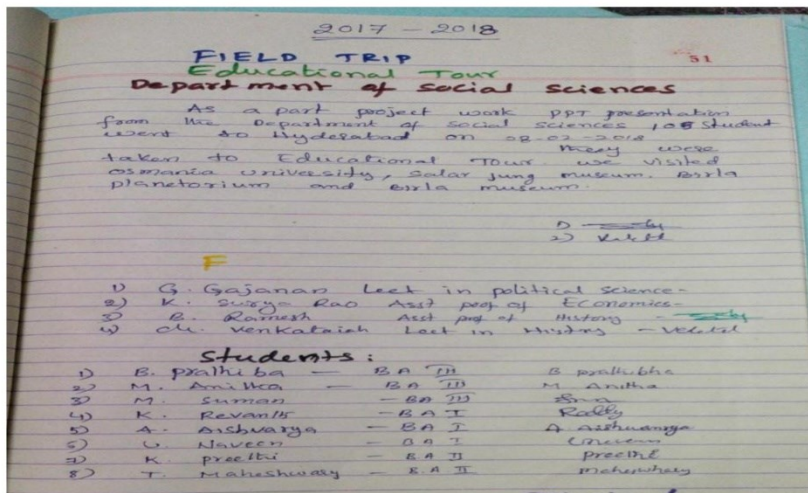 2017 - 2018
FIELD TRIP
51
Educational Tour
Department of social sciences
As a part project work PPT presentation
from the Department of social sciences, 105 student
went to Hyderabad on 08-02-2018
They were
taken to Educational Tour we visited
osmania university, salar jung museum. Birla
planetorium and Birla museum.
1)
2)
F
1) G. Gajanan Lect in political science-
2) K. Surya Rao Asst prof of Economics-
3) B. Ramesh Asst prof of History -
4) ch. venkataiah Lect in History -
Students:
1) B. prathiba - BA III B prathibha
2) M. Anitha - BA III M Anitha
3) M. Suman - BA III
4) K. Revanth - BA I Reddy
5) A. Aishvarya - BA I A Aishwarya
6) U. Naveen - BA I
7) K. preethi - BA II preethi
8) T. Maheshwary - B.A II maheshwary